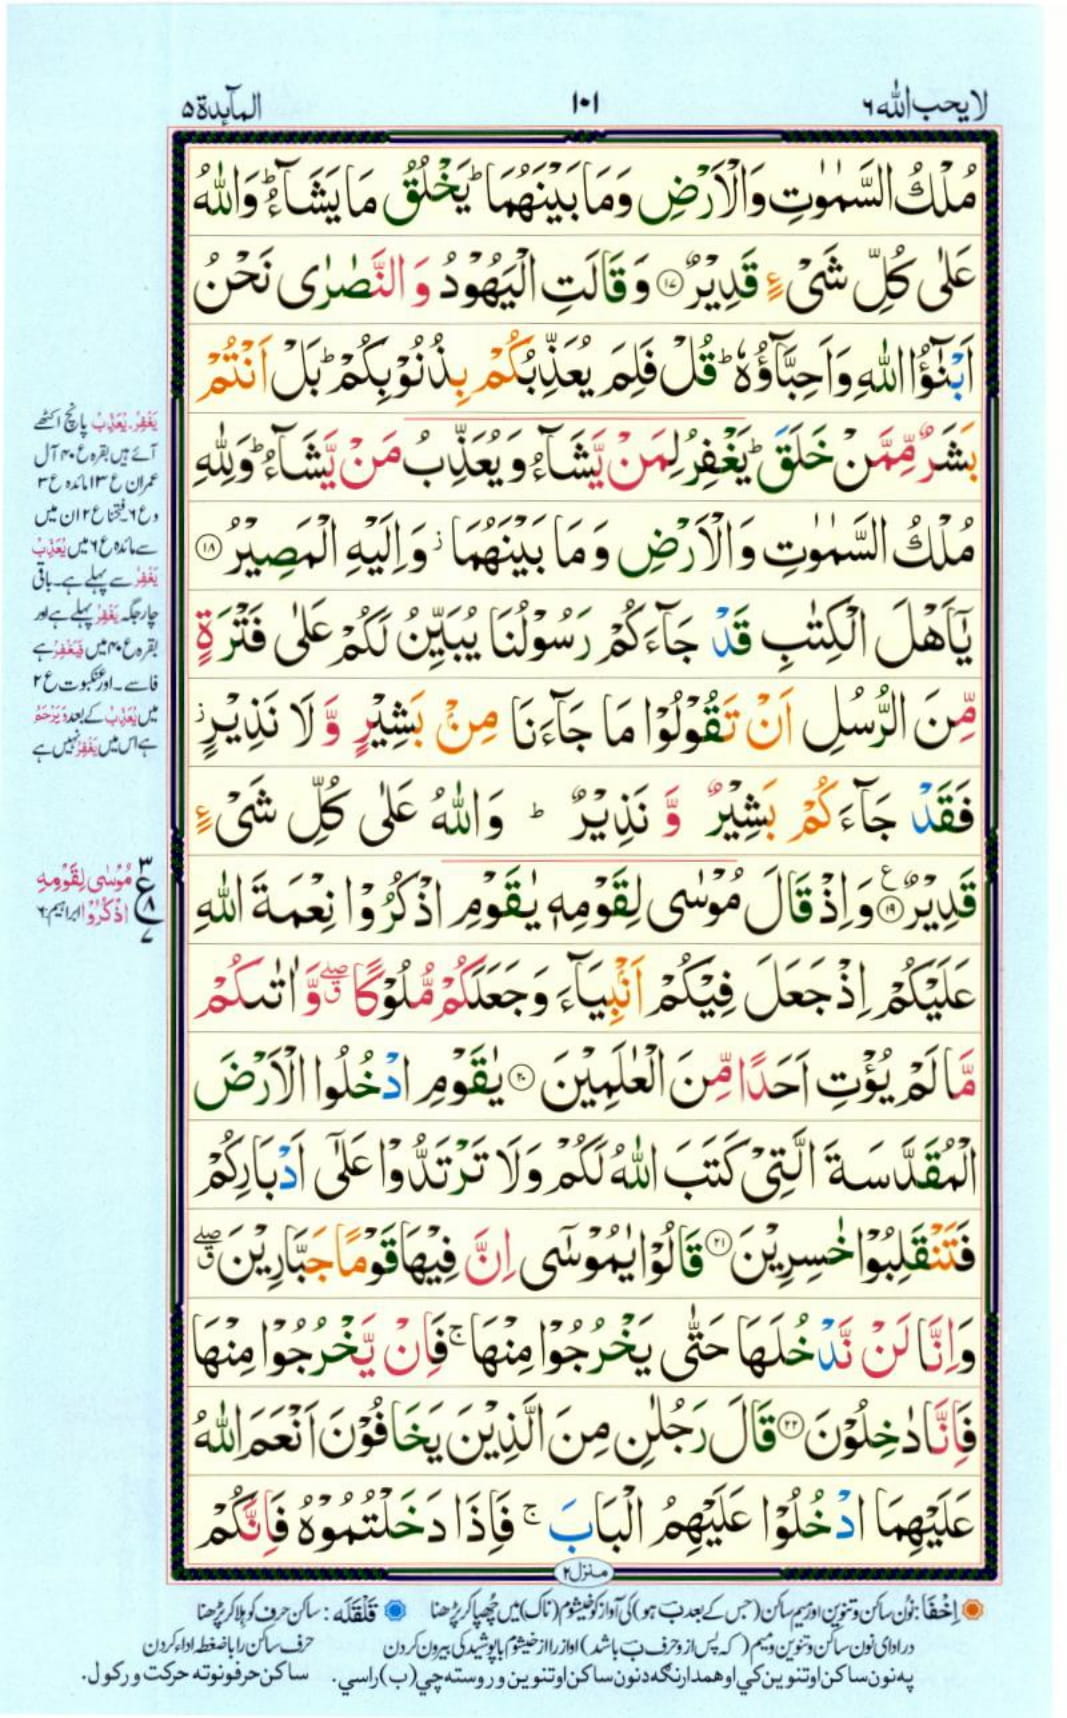 لا يحب الله ٦
١٠١
المآىِٕدة ٥
مُلْكُ السَّمٰوٰتِ وَالْاَرْضِ وَمَا بَيْنَهُمَا ؕ يَخْلُقُ مَا يَشَآءُ ؕ وَاللّٰهُ
عَلٰى كُلِّ شَیْءٍ قَدِيْرٌ ۝۱۷ وَقَالَتِ الْيَهُوْدُ وَ النَّصٰرٰى نَحْنُ
اَبْنٰٓؤُا اللّٰهِ وَاَحِبَّآؤُهٗ ؕ قُلْ فَلِمَ يُعَذِّبُكُمْ بِذُنُوْبِكُمْ ؕ بَلْ اَنْتُمْ
بَشَرٌ مِّمَّنْ خَلَقَ ؕ يَغْفِرُ لِمَنْ يَّشَآءُ وَيُعَذِّبُ مَنْ يَّشَآءُ ؕ وَلِلّٰهِ
مُلْكُ السَّمٰوٰتِ وَالْاَرْضِ وَمَا بَيْنَهُمَا ؗ وَاِلَيْهِ الْمَصِيْرُ ۝۱۸
يٰۤاَهْلَ الْكِتٰبِ قَدْ جَآءَكُمْ رَسُوْلُنَا يُبَيِّنُ لَكُمْ عَلٰى فَتْرَةٍ
مِّنَ الرُّسُلِ اَنْ تَقُوْلُوْا مَا جَآءَنَا مِنْۢ بَشِيْرٍ وَّ لَا نَذِيْرٍ ؗ
فَقَدْ جَآءَكُمْ بَشِيْرٌ وَّ نَذِيْرٌ ؕ وَاللّٰهُ عَلٰى كُلِّ شَیْءٍ
قَدِيْرٌ ۝۱۹ ع وَاِذْ قَالَ مُوْسٰى لِقَوْمِهٖ يٰقَوْمِ اذْكُرُوْا نِعْمَةَ اللّٰهِ
عَلَيْكُمْ اِذْ جَعَلَ فِيْكُمْ اَنْۢبِيَآءَ وَجَعَلَكُمْ مُّلُوْكًا ۖۗ وَّاٰتٰىكُمْ
مَّا لَمْ يُؤْتِ اَحَدًا مِّنَ الْعٰلَمِيْنَ ۝۲۰ يٰقَوْمِ ادْخُلُوا الْاَرْضَ
الْمُقَدَّسَةَ الَّتِیْ كَتَبَ اللّٰهُ لَكُمْ وَلَا تَرْتَدُّوْا عَلٰٓى اَدْبَارِكُمْ
فَتَنْقَلِبُوْا خٰسِرِيْنَ ۝۲۱ قَالُوْا يٰمُوْسٰٓى اِنَّ فِيْهَا قَوْمًا جَبَّارِيْنَ ۖۗ
وَاِنَّا لَنْ نَّدْخُلَهَا حَتّٰى يَخْرُجُوْا مِنْهَا ۚ فَاِنْ يَّخْرُجُوْا مِنْهَا
فَاِنَّا دٰخِلُوْنَ ۝۲۲ قَالَ رَجُلٰنِ مِنَ الَّذِيْنَ يَخَافُوْنَ اَنْعَمَ اللّٰهُ
عَلَيْهِمَا ادْخُلُوْا عَلَيْهِمُ الْبَابَ ۚ فَاِذَا دَخَلْتُمُوْهُ فَاِنَّكُمْ
منزل ٢
یَغْفِرُ۔یُعَذِّبُ پانچ اکٹھے
آئے ہیں بقرہ ع ۴۰ آل
عمران ع ۱۳ مائدہ ع ۳
و ع ۶ فتحنا ع ۲ ان میں
سے مائدہ ع ۶ میں یُعَذِّبُ
یَغْفِرُ سے پہلے ہے۔ باقی
چار جگہ یَغْفِرُ پہلے ہے اور
بقرہ ع ۴۰ میں فَیَغْفِرُ ہے
فا سے۔ اور عنکبوت ع ۲
میں یُعَذِّبُ کے بعد وَیَرْحَمُ
ہے اس میں یَغْفِرُ نہیں ہے
۳
ع ۸
۷
مُوْسٰى لِقَوْمِهِ
اذْكُرُوْا ابراہیم:۶
اِخْفَا: نون ساکن و تنوین اور میم ساکن (جس کے بعد بَ ہو) کی آواز کو خیشوم (ناک) میں چھپا کر پڑھنا
قَلْقَلَه: ساکن حرف کو ہلا کر پڑھنا
در ادای نون ساکن و تنوین و میم (که پس از و حرف بَ باشد) آواز را از خیشوم با پوشیدگی بیرون کردن
حرف ساکن را با ضغطہ ادا کردن
په نون ساکن او تنوین کي او همدا رنګه د نون ساکن او تنوین وروسته چي (ب) راسي.
ساکن حرفونو ته حرکت ورکول.